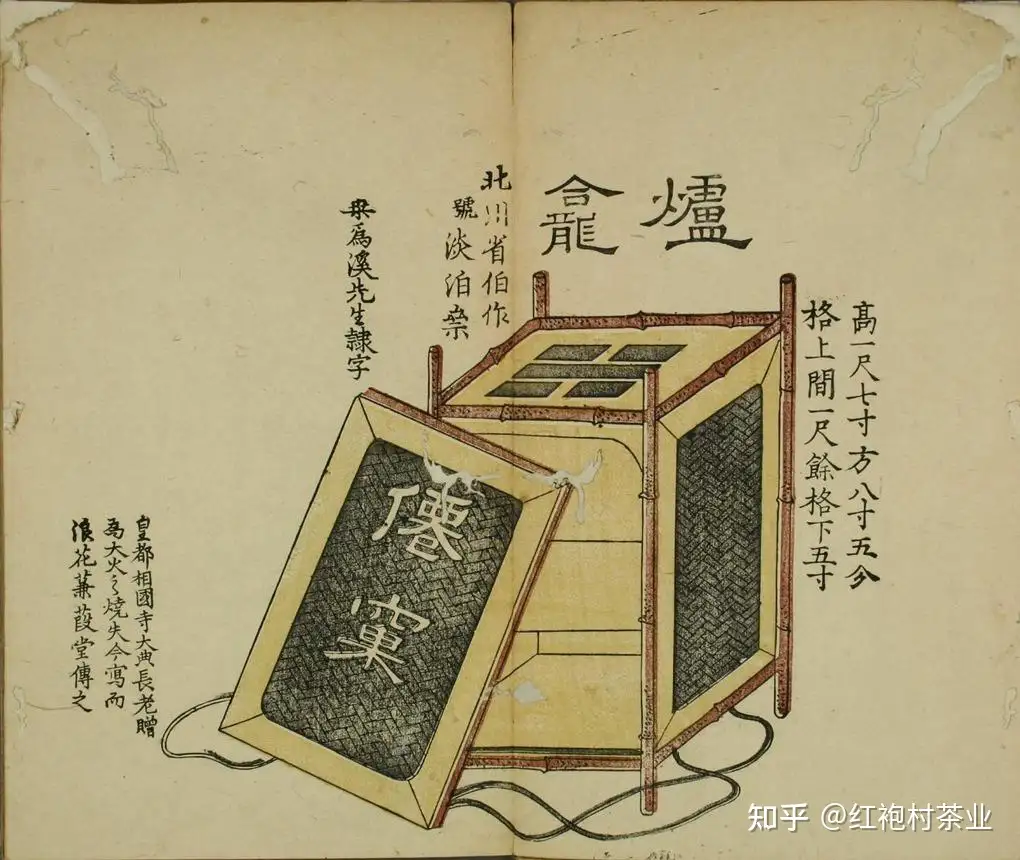 爐龕
高一尺七寸方八寸五分
格上間一尺餘格下五寸
北川省伯作
號淡泊
桒爲溪先生隷字
僊窠
皇都相國寺大典長老贈
為大火之燒失今寫而
浪花蒹葭堂傳之
知乎 @红袍村茶业